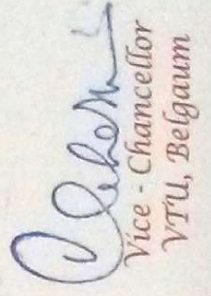 Vice - Chancellor
VTU, Belgaum